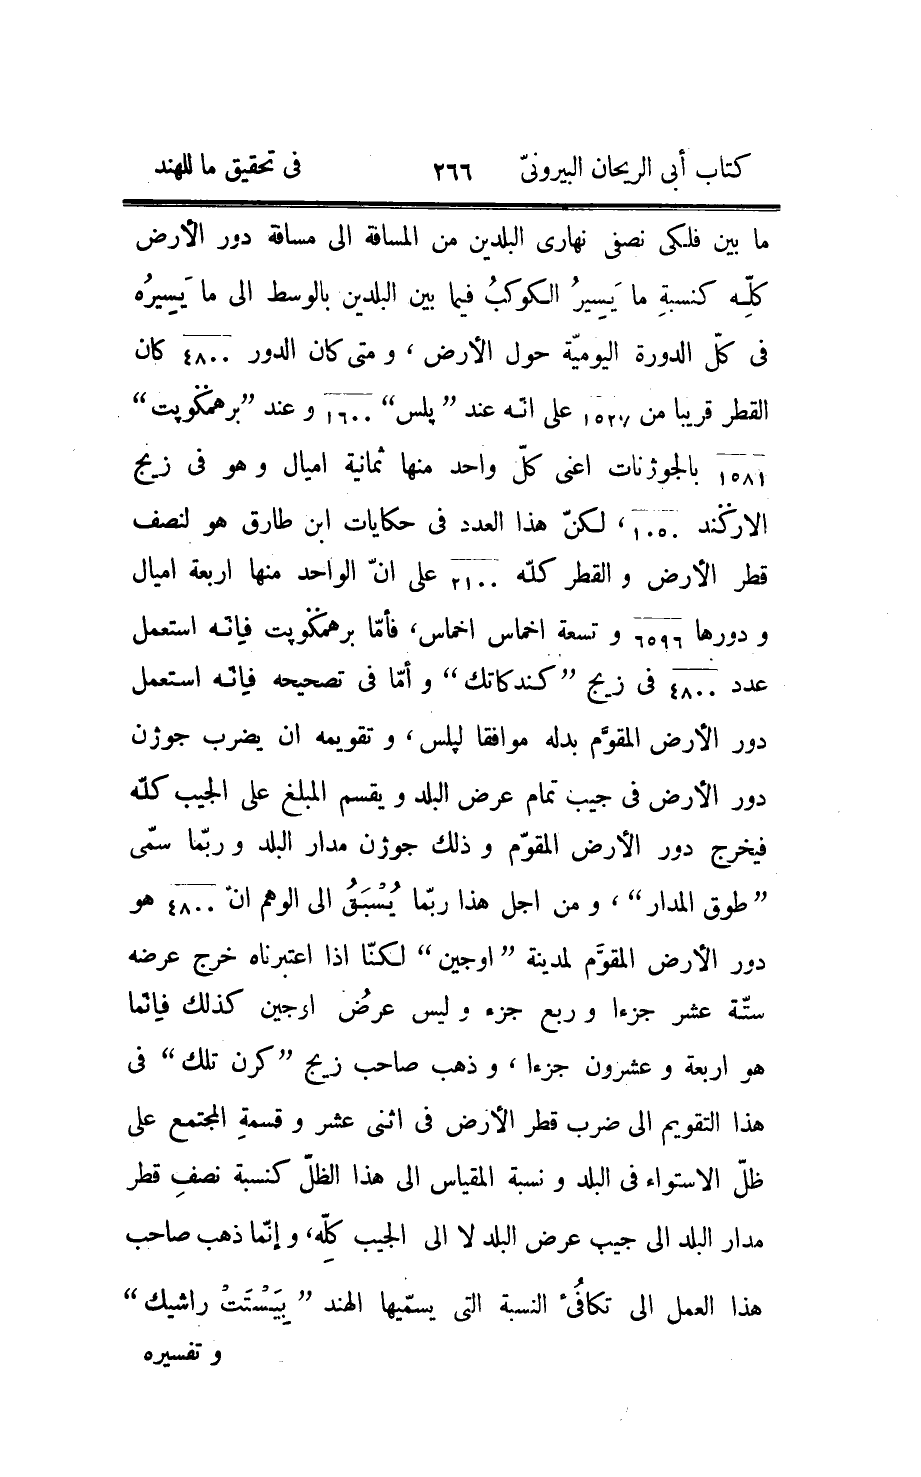 كتاب أبى الريحان البيرونىّ ٢٦٦ فى تحقيق ما للهند
ما بين فلكى نصفى نهارى البلدين من المسافة الى مسافة دور الأرض
كلِّه كنسبةِ ما يَسِيرُ الكوكبُ فيما بين البلدين بالوسط الى ما يَسِيرُه
فى كلّ الدورة اليوميّة حول الأرض ، و متى كان الدور ٤٨٠٠ كان
القطر قريبا من ١٥٢٧ على انّه عند ”پلس“ ١٦٠٠ و عند ”برهمڭوپت“
١٥٨١ بالجوژنات اعنى كلّ واحد منها ثمانية اميال و هو فى زيج
الاركند ١٠٥٠ ، لكنّ هذا العدد فى حكايات ابن طارق هو لنصف
قطر الأرض و القطر كلّه ٢١٠٠ على انّ الواحد منها اربعة اميال
و دورها ٦٥٩٦ و تسعة اخماس اخماس، فأمّا برهمڭوپت فإنّه استعمل
عدد ٤٨٠٠ فى زيج ”كندكاتك“ و أمّا فى تصحيحه فإنّه استعمل
دور الأرض المقوَّم بدله موافقا لپلس ، و تقويمه ان يضرب جوژن
دور الأرض فى جيب تمام عرض البلد و يقسم المبلغ على الجيب كلّه
فيخرج دور الأرض المقوّم و ذلك جوژن مدار البلد و ربّما سمّى
”طوق المدار“ ، و من اجل هذا ربّما يُسْبَقُ الى الوهم انّ ٤٨٠٠ هو
دور الأرض المقوَّم لمدينة ”اوجين“ لكنّا اذا اعتبرناه خرج عرضه
ستّة عشر جزءا و ربع جزء و ليس عرضُ اوجين كذلك فإنّما
هو اربعة و عشرون جزءا ، و ذهب صاحب زيج ”كرن تلك“ فى
هذا التقويم الى ضرب قطر الأرض فى اثنى عشر و قسمةِ المجتمع على
ظلّ الاستواء فى البلد و نسبة المقياس الى هذا الظلّ كنسبة نصفِ قطر
مدار البلد الى جيب عرض البلد لا الى الجيب كلِّه، و إنّما ذهب صاحب
هذا العمل الى تكافُىء النسبة التى يسمّيها الهند ”بِيَسْتَتْ راشيك“
و تفسيره